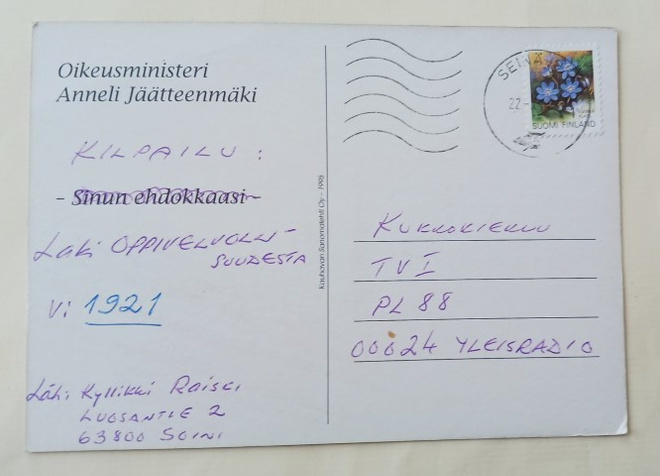 Oikeusministeri
Anneli Jäätteenmäki
KILPAILU:
- Sinun ehdokkaasi -
Laki OPPIVELVOLLI-
SUUDESTA
V: 1921
Läh: Kyllikki Raiski
LUOSANTIE 2
63800 SOINI
Kauhavan Sanomalehti Oy - 1995
SEINÄ
22-
SUOMI FINLAND
KUKKOKIEKUU
TV I
PL 88
00024 YLEISRADIO